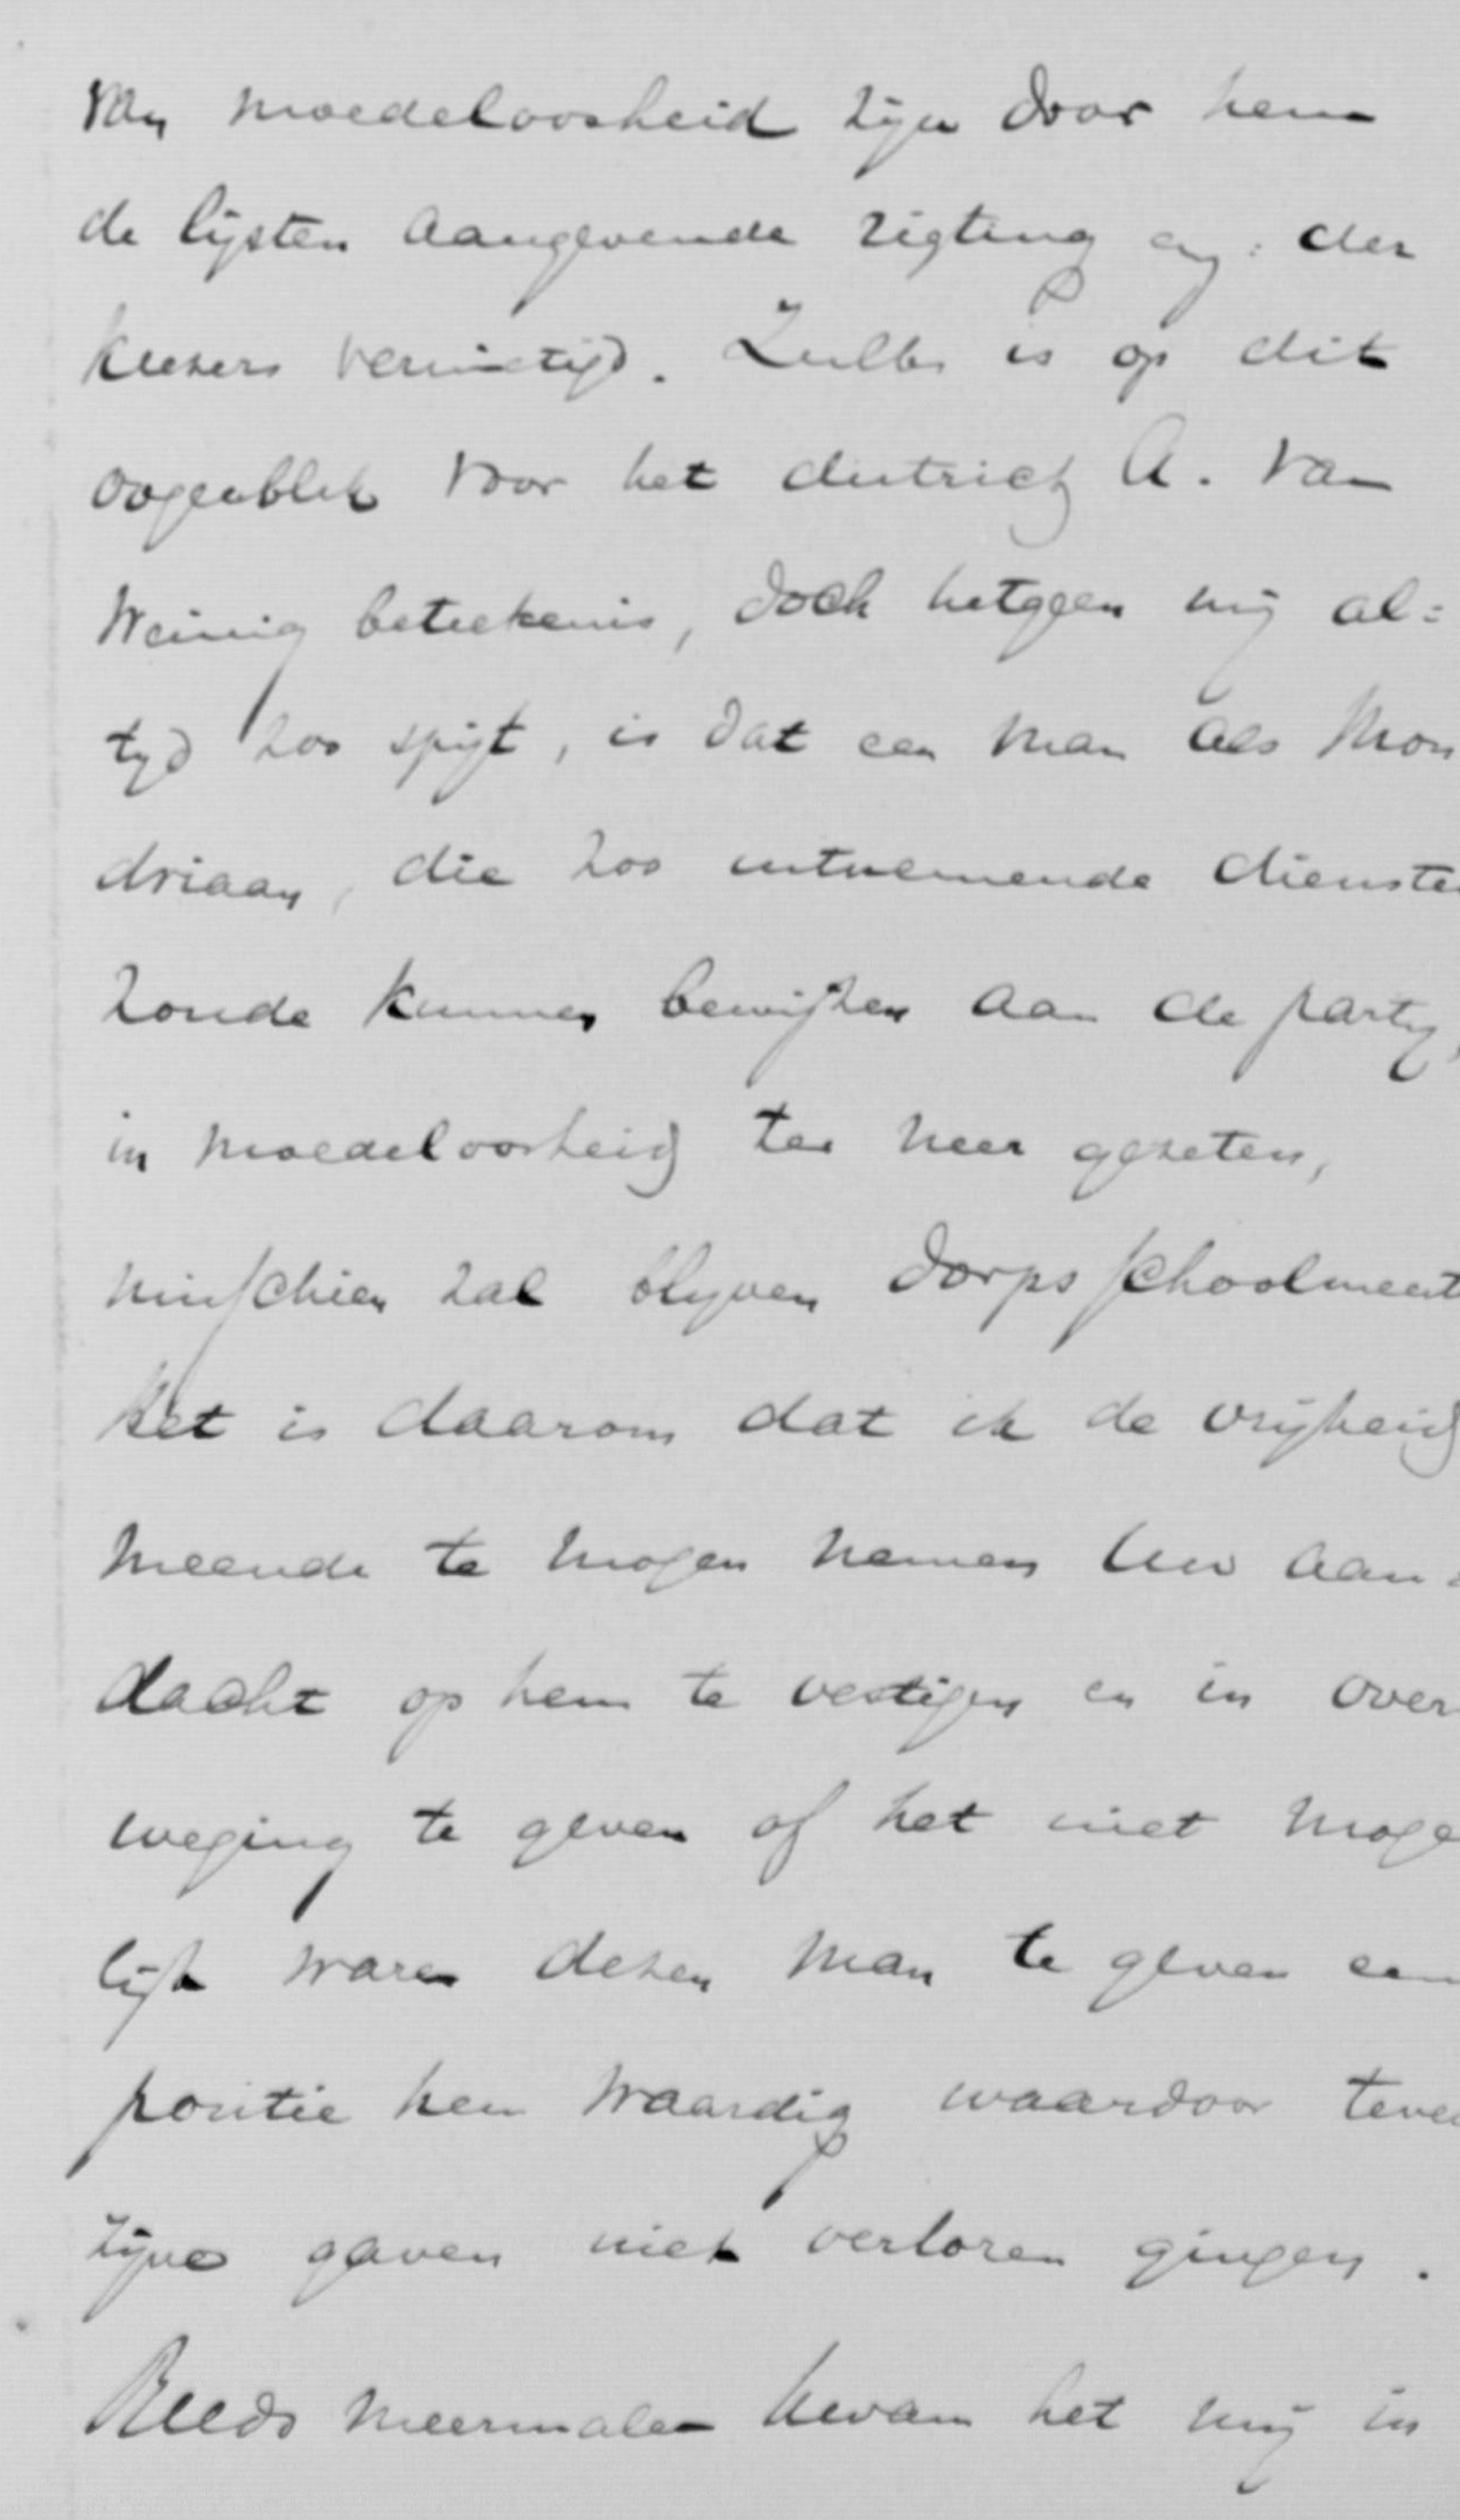 van moedeloosheid zijn door hem
de lijsten aangevende rigting en: der
kiezers vernietigd. Zulks is op dit
oogenblik voor het district A. van
weinig beteekenis, doch hetgeen mij al=
tyd zoo spijt, is dat een man als Mon
driaan, die zoo uitnemende dienste
zoude kunnen bewijzen aan de party,
in moedeloosheid ter neer gezeten,
misschien zal blyven dorpsschoolmeest
Het is daarom dat ik de vrijheid
meende te mogen nemen Uw aan=
dacht op hem te vestigen en in over
weging te geven of het niet moge
lijk ware dezen man te geven een
positie hem waardig waardoor teve
zijne gaven niet verloren gingen.
Reeds meermalen kwam het mij in